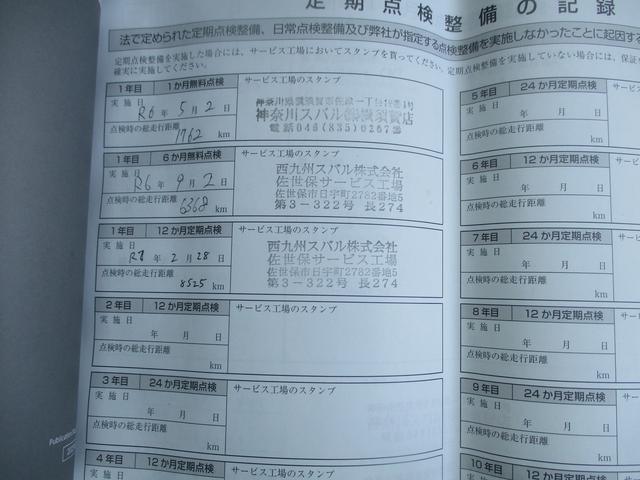 定期点検整備の記録
法で定められた定期点検整備、日常点検整備及び弊社が指定する点検整備を実施しなかったことに起因する
定期点検整備を実施した場合には、サービス工場においてスタンプを貰ってください。定期点検整備を実施していない場合は、保証
確実に実施してください。
1年目 1か月無料点検 サービス工場のスタンプ
実施日
R6年5月2日
点検時の総走行距離
1762 km
神奈川スバル㈱横須賀店
電話046(835)0267
1年目 6か月無料点検 サービス工場のスタンプ
実施日
R6年9月2日
点検時の総走行距離
6368 km
西九州スバル株式会社
佐世保サービス工場
佐世保市日宇町2782番地5
第3-322号 長274
1年目 12か月定期点検 サービス工場のスタンプ
実施日
R7年2月28日
点検時の総走行距離
8525 km
西九州スバル株式会社
佐世保サービス工場
佐世保市日宇町2782番地5
第3-322号 長274
2年目 12か月定期点検 サービス工場のスタンプ
実施日
年 月 日
点検時の総走行距離
km
3年目 24か月定期点検 サービス工場のスタンプ
実施日
年 月 日
点検時の総走行距離
km
4年目 12か月定期点検 サービス工場のスタンプ
5年目 24か月定期点検
実施日
年 月 日
点検時の総走行距離
km
6年目 12か月定期点検 サー
実施日
年 月 日
点検時の総走行距離
km
7年目 24か月定期点検 サー
実施日
年 月 日
点検時の総走行距離
km
8年目 12か月定期点検 サー
実施日
年 月 日
点検時の総走行距離
km
9年目 24か月定期点検 サー
実施日
年 月 日
点検時の総走行距離
km
10年目 12か月定期点検 サー
実施日